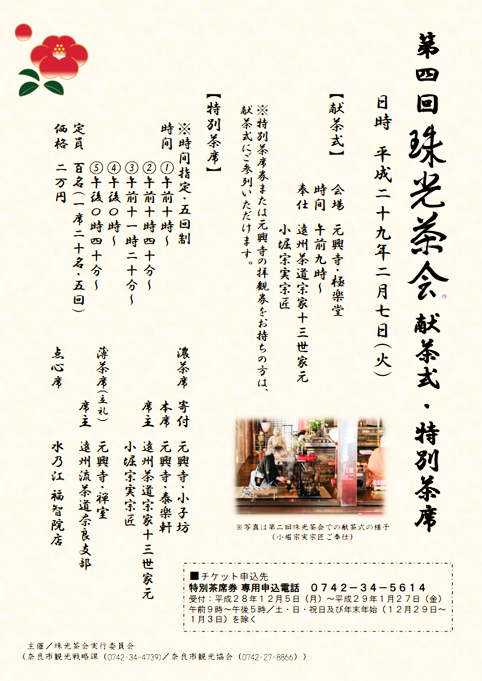 第四回 珠光茶会 献茶式・特別茶席
日時 平成二十九年二月七日(火)
【献茶式】
会場 元興寺・極楽堂
時間 午前九時~
奉仕 遠州茶道宗家十三世家元
小堀宗実宗匠
※特別茶席券または元興寺の拝観券をお持ちの方は、
献茶式にご参列いただけます。
【特別茶席】
※時間指定・五回制
時間 ①午前十時~
②午前十時四十分~
③午前十一時二十分~
④午後〇時~
⑤午後〇時四十分~
定員 百名(一席二十名・五回)
価格 二万円
濃茶席 寄付 元興寺・小子坊
本席 元興寺・泰楽軒
席主 遠州茶道宗家十三世家元
小堀宗実宗匠
薄茶席(立礼) 元興寺・禅室
席主 遠州流茶道奈良支部
点心席 水乃江 福智院店
※写真は第二回珠光茶会での献茶式の様子
(小堀宗実宗匠ご奉仕)
■チケット申込先
特別茶席券 専用申込電話 0742-34-5614
受付:平成28年12月5日(月)~平成29年1月27日(金)
午前9時~午後5時/土・日・祝日及び年末年始(12月29日~
1月3日)を除く
主催/珠光茶会実行委員会
(奈良市観光戦略課(0742-34-4739)/奈良市観光協会(0742-27-8866))